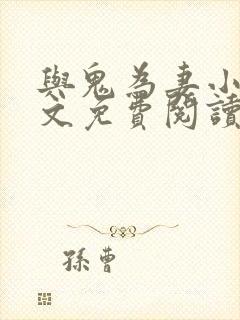 與鬼為妻小
文免費閱讀
孫曹